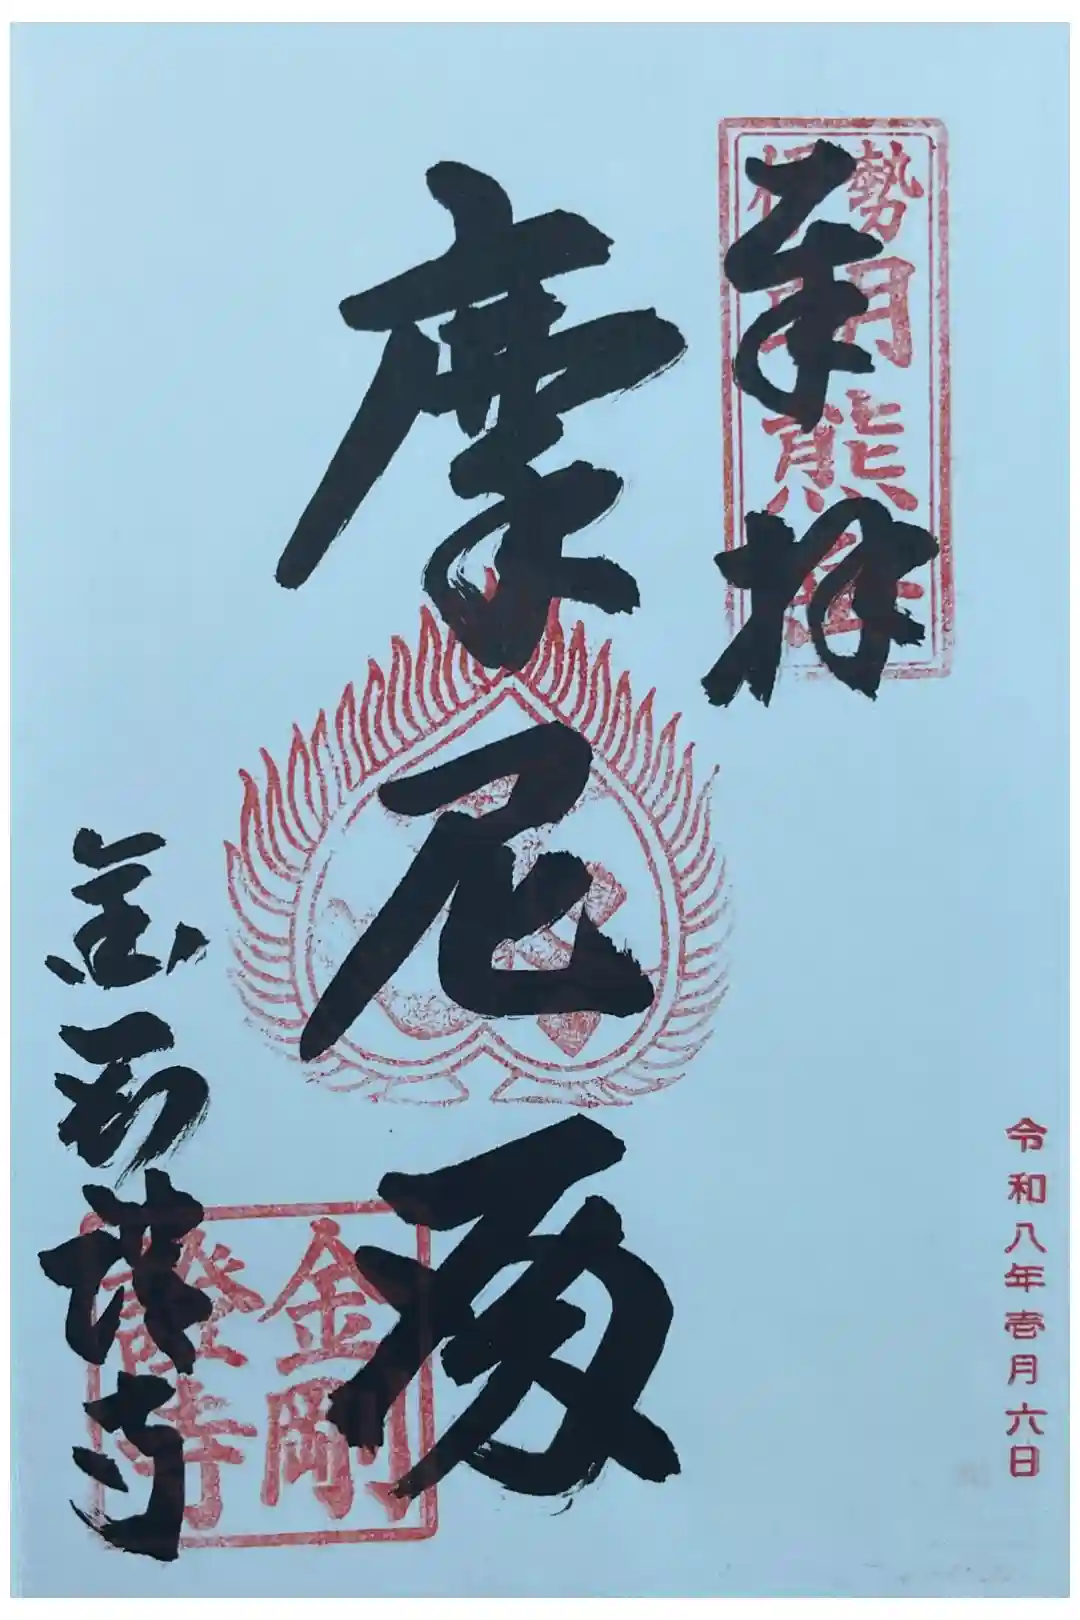 奉拝
勢
熊
令和八年壱月六日
摩尼殿
金剛證寺
金剛
證寺